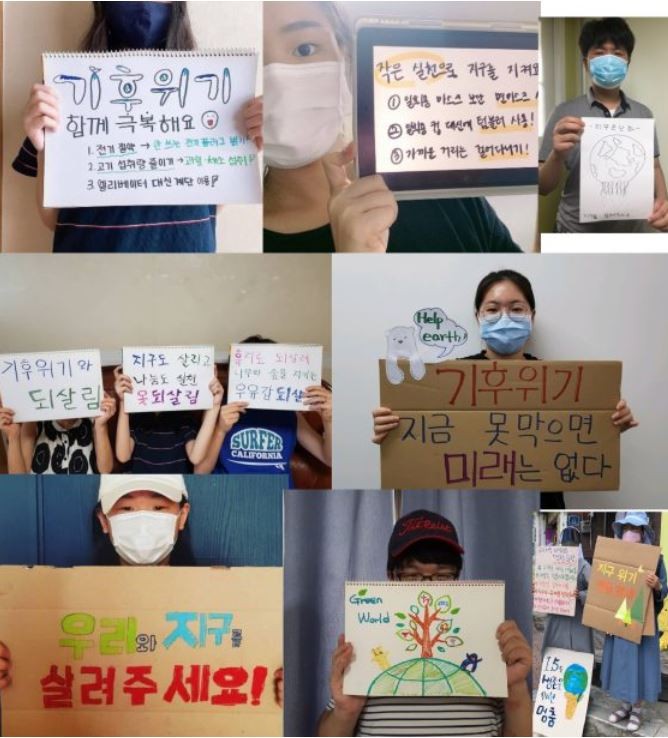 기후위기
함께 극복해요
1. 전기 절약 → 안 쓰는 전기플러그 뽑기
2. 고기 섭취량 줄이기 → 과일·채소 섭취
3. 엘리베이터 대신 계단 이용
작은 실천으로 지구를 지켜요
① 일회용 마스크 보단 면마스크
② 일회용 컵 대신에 텀블러 사용!
③ 가까운 거리는 걸어다니기!
기후위기와
되살림
지구도 살리고
나눔도 실천
옷되살림
나무와 숲을 지키는
우유갑 되살
SURFER
CALIFORNIA
Help
earth!
기후위기
지금 못막으면
미래는 없다
우리와 지구를
살려주세요!
Titleist
Green
World
지구 위기
1.5도
멈춤